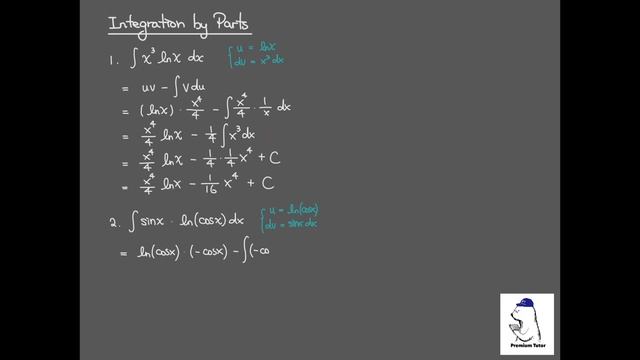 Integration by Parts
1. ∫ x³ lnx dx { u = lnx
dv = x³ dx
= uv - ∫ v du
= (lnx) · x⁴/4 - ∫ x⁴/4 · 1/x dx
= x⁴/4 lnx - 1/4 ∫ x³ dx
= x⁴/4 lnx - 1/4 · 1/4 x⁴ + C
= x⁴/4 lnx - 1/16 x⁴ + C
2. ∫ sinx · ln(cosx) dx { u = ln(cosx)
dv = sinx dx
= ln(cosx) · (-cosx) - ∫ (-co
Premium Tutor